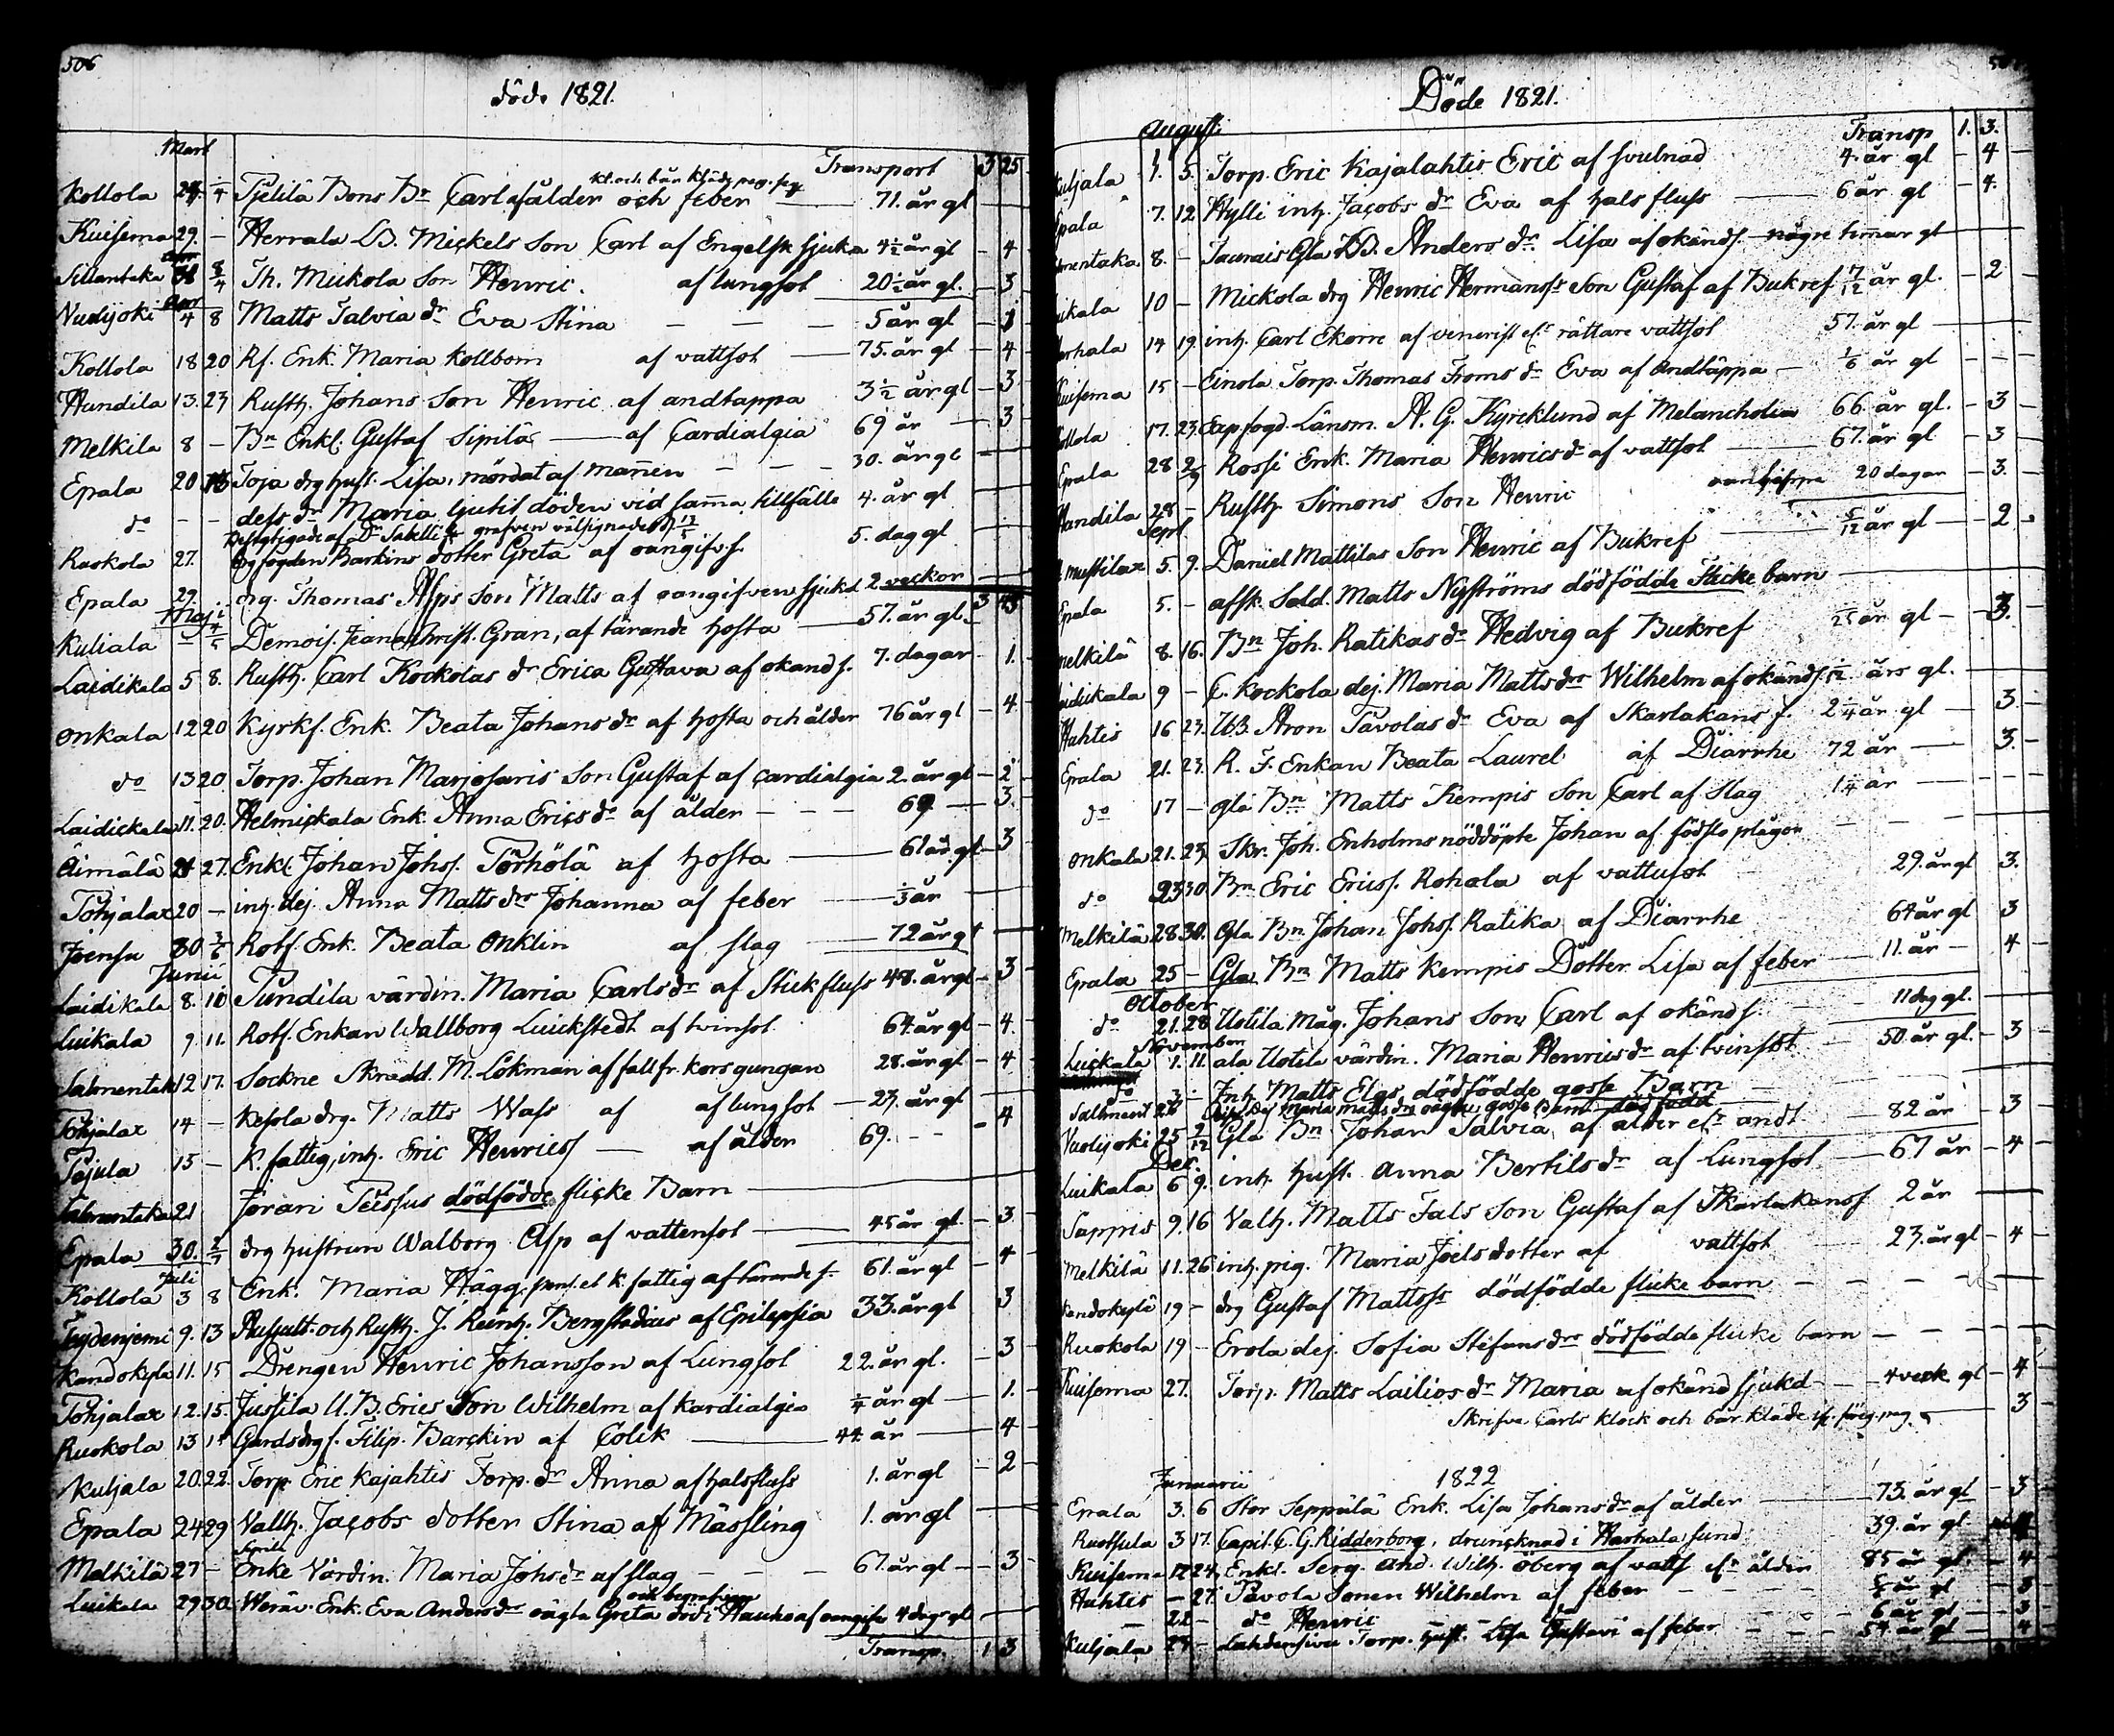 506
döde 1821.
Mart
Transport 3 25
kl. och bår kläde
Kollola 24. 1/4 Pjelilä Bons Br Carl af ålder och feber 71. år gl
Kuisema 29. - Herrala LB. Mickels Son Carl af Engelsk sjuka 4½ år gl - 4
Sillantaka 31 8/4 Th. Muikola Son Henric. af lungsot 20½ år gl. - 3
Apr
Nudijoki 4 8 Matts Talvia dr Eva Stina - - - 5 år gl - 3
Kollola 18 20 Rf. Enk. Maria Kollbom af vattsot 75. år gl - 4
Handila 13. 23 Rusth. Johans Son Henric af andtappa 3½ år gl - 3
Melkila 8 - Bn Enkl. Gustaf Sipilä af Cardialgia 69 år - 3
Epala 20 Toja drg hust. Lisa, mördat af mannen - - - 30. år gl
do - - dess dr Maria ljutit döden vid samma tillfälle 4. år gl
Ruokola 27. fogden Barkins dotter Greta af oangifv. s. 5. dag gl
Epala 29. drg. Thomas Alps Son Matts af oangifven sjukd 2 veckor
3 43
Maj
Kuliala - Demois. Jeana Christ. Gran, af tärande hosta 57. år gl.
Laidikala 5 8. Rusth. Carl Kockolas dr Erica Gustava af okänd s. 7. dagar - 1.
Onkala 12 20 Kyrks. Enk. Beata Johans dr af hosta och ålder 76 år gl - 4
do 13 20 Torp. Johan Marjosaris Son Gustaf af Cardialgia 2. år gl - 2
Laidickala 11. 20. Helmickala Enk. Anna Erics dr af ålder - - - 69 3.
Äimälä 21 27. Enkl. Johan Johs. Törhölä af hosta 61 år gl - 3
Pohjalax 20 - inh. dej. Anna Matts dr Johanna af feber ½ år
Joensu 30. 3/6 Rotf. Enk. Beata Onklin af slag 72 år gl
Junii
Laidikala 8. 10 Pundila värdin. Maria Carls dr af Stickfluss 48. år gl - 3
Luikala 9 11. Rotf. Enkan Wallborg Luickstedt af tvinsot 64 år gl - 4.
Salmentak 12 17. Sockne Skrädd. M. Lökman af fall fr. korsgungan 28. år gl - 4
Pohjalax 14 - Kesola drg. Matts Wass af af lungsot 23. år gl
Pejula 15 - K. fattig, inh. Eric Henrics af ålder 69. - - - 4
Salmentaka 21 Jöran Peissus dödfödde flicke Barn
Epala 30. 2/7 drg hustrun Walborg Asp af vattensot 45 år gl - 3
Juli
Kollola 3 8 Enk. Maria Hägg. pens. et k. fattig af tärande s. 61. år gl - 4
Tydenjemi 9. 13 Auscult. och Rusth. J. Reinh. Bergstadius af Epilepsia 33. år gl 3
Kandokyla 11. 15 Drengen Henric Johansson af Lungsot 22. år gl. - 3
Pohjalax 12. 15. Jussila U. B. Erics Son Wilhelm af kardialgia ¼ år gl - 1.
Ruokola 13 15 Gardsdrg s. Filip. Barckin af Colik 44 år 4
Kuljala 20. 22. Torp. Eric Kajahtis Torp. dr Anna af halsfluss 1. år gl - 2
Epala 24 29 Vallh. Jacobs dotter Stina af Mässling 1. år gl
Melkilä 27 - Enke Värdin. Maria Johs dr af slag - - - 67. år gl - 3
Luikala 29 30. Weräv. Enk. Eva Anders dr oägta Greta död i Hauho af oangifn 4 dagr gl
och begrafven
Transp. 1 3

Döde 1821.
August.
Transp 1. 3.
Kuljala 1. 5. Torp. Eric Kajalahtis Eric af svulnad 4. år gl - 4
Epala 7. 12 Hylli inh. Jacobs dr Eva af halsfluss 6 år gl - 4.
Salmentaka 8. - Taurais Gla Anders dr Lisa af okänd s. några timar gl
Luikala 10 - Mickola drg Henric Hermanss Son Gustaf af Bukref 7/12 år gl. - 2
14 19 inh. Carl Ekorre af venerisk elr rättare vattsot 57. år gl
Kuisema 15 - Einola Torp. Thomas Froms dr Eva af Andtäppa 1/6 år gl
Kollola 17. 23. Länsm. A. G. Kyrcklund af Melancholia 66. år gl. - 3
Epala 28. 2/9 Rossi Enk. Maria Henrics dr af vattsot 67. år gl - 3
Handila 28 - Rusth. Simons Son Henric 20 dagar - 3.
Sept
Mustilax 5. 9. Daniel Mattilas Son Henric af Bukref 5/12 år gl - 2
Epala 5. - afsk. Sold. Matts Nyströms dödfödde Flicke barn
Melkilä 8. 16. Bn Joh. Ratikas dr Hedvig af Bukref år gl - 3.
Laidikala 9 - C. Kockola dej. Maria Matts dr Wilhelm af okänd s. års gl.
Hahtis 16 23. U.B. Aron Tavolas dr Eva af Skarlakans f. 2¼ år gl 3.
Epala 21. 23. R. F. Enkan Beata Laurel af Diarrhe 72 år 3.
do 17 - gla Bn Matts Kempis Son Carl af slag 1¼ år
Onkala 21. 23 Skr. Joh. Enholms nöddöpte Johan af födslo plågor
do 23 30. Bn Eric Erics. Rohola af vattusot 29. år gl 3.
Melkilä 28 30. Gla Bn Johan Johs. Ratika af Diarrhe 64 år gl 3
Epala 25 - Gla Bn Matts Kempis Dotter Lisa af feber 11. år - 4
October
do 21. 28 Uotila Måg. Johans Son Carl af okänd s. 11 dag gl.
November
Luickala 1. 11. ala Uotila värdin. Maria Henrics dr af tvinsot 50. år gl. - 3
Inh. Matts Elgs dödfödde gosse Barn
Salment 26 Dej. Maria Matts dr oägta gosse Barn dödfödd
Nudijoki 25 2/12 Gla Bn Johan Talvia af ålder elr andt 82 år 3
Dec.
Luikala 6 9. inh. hust. Anna Bertils dr af Lungsot 67 år - 4
Sappis 9. 16 Valh. Matts Fals Son Gustaf af Skarlakansf 2 år
Melkilä 11. 26 inh. pig. Maria Joels dotter af vattsot 23. år gl - 4
Kandokylä 19 - drg Gustaf Mattss dödfödde flicke barn
Ruokola 19 - Erola dej. Sofia Stefans dr dödfödde flicke barn
Kuisema 27. Torp. Matts Lailios dr Maria af okänd sjukd 4 veck gl - 4
Skrifva Carls klock och bår kläde 3

1822
Januarii
Epala 3. 6 Stor Seppälä Enk. Lisa Johans dr af ålder 73. år gl - 3
Ruossula 3 17. Capit. C. G. Ridderborg, druncknad i Harhala sund 39. år gl
Kuisema 17 24. Enkl. Serg. And. Wilh. Öberg af vatts elr ålder 85 år gl - 4
Hahtis - 27. Pavola Sonen Wilhelm af feber år gl - 3
- 22 - do Henric 6 år gl - 3
Kuljala 27 - Torp. hust. Lisa Gustavi af feber 54. år gl - 4